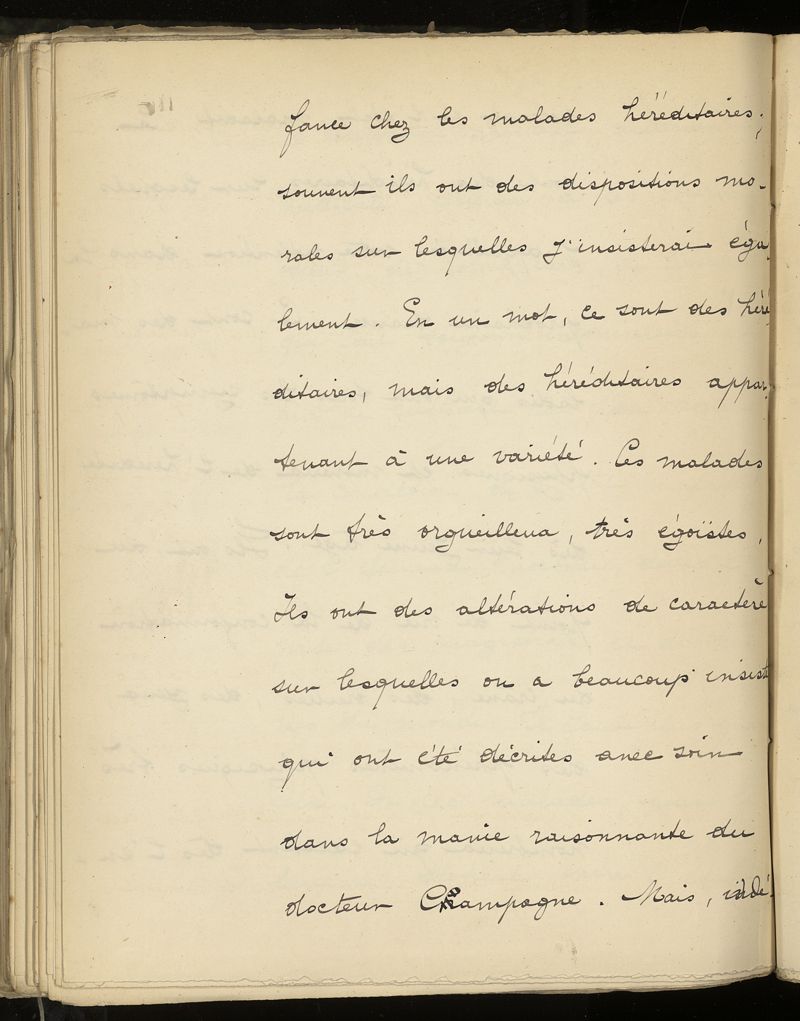 fance chez les malades héréditaires;
souvent ils ont des dispositions mo-
rales sur lesquelles j'insisterai éga
lement. En un mot, ce sont des héré
ditaires, mais des héréditaires appar-
tenant à une variété. Ces malades
sont très orgueilleux, très égoïstes,
Ils ont des altérations de caractère
sur lesquelles on a beaucoup insist
qui ont été décrites avec soin
dans la manie raisonnante du
docteur Campagne. Mais, indé